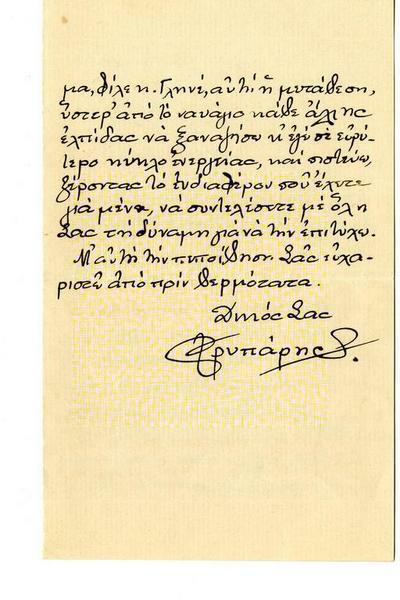 μα, φίλε κ. Γληνέ, αὐτὴ ἡ μετάθεση,
ὕστερ' ἀπὸ τὸ ναυάγιο κάθε ἄλλης
ἐλπίδας νὰ ξαναζήσω κι ἐγὼ σὲ εὐρύ-
τερο κύκλο ἐνεργείας, καὶ πιστεύω,
ξέροντας τὸ ἐνδιαφέρον ποὺ ἔχετε
γιὰ μένα, νὰ συντελέσετε μὲ ὅλη
Σας τὴ δύναμη γιὰ νὰ τὴν ἐπιτύχω.
Μ' αὐτὴ τὴν πεποίθηση Σᾶς εὐχα-
ριστῶ ἀπὸ πρὶν θερμότατα.
Δικός Σας
Γρυπάρης